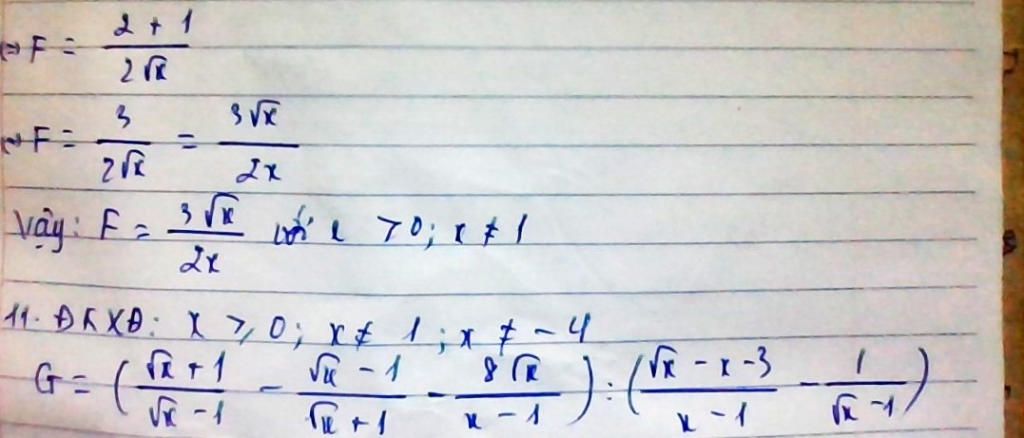 ⇔ F = (2 + 1)/(2√x)
⇔ F = 3/(2√x) = (3√x)/(2x)
Vậy: F = (3√x)/(2x) với x > 0; x ≠ 1
11. ĐKXĐ: x ≥ 0; x ≠ 1; x ≠ -4
G = ((√x + 1)/(√x - 1) - (√x - 1)/(√x + 1) - (8√x)/(x - 1)) : ((√x - x - 3)/(x - 1) - 1/(√x - 1))